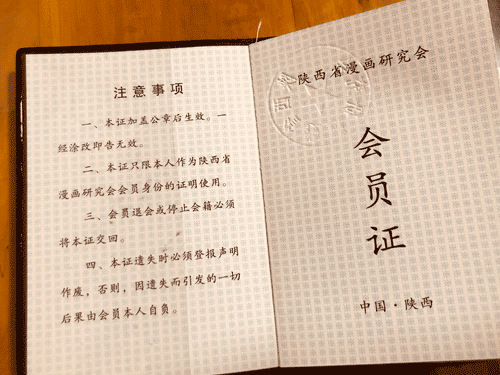 注意事项
一、本证加盖公章后生效。一
经涂改即告无效。
二、本证只限本人作为陕西省
漫画研究会会员身份的证明使用。
三、会员退会或停止会籍必须
将本证交回。
四、本证遗失时必须登报声明
作废，否则，因遗失而引发的一切
后果由会员本人自负。
陕西省漫画研究会
会员证
中国·陕西